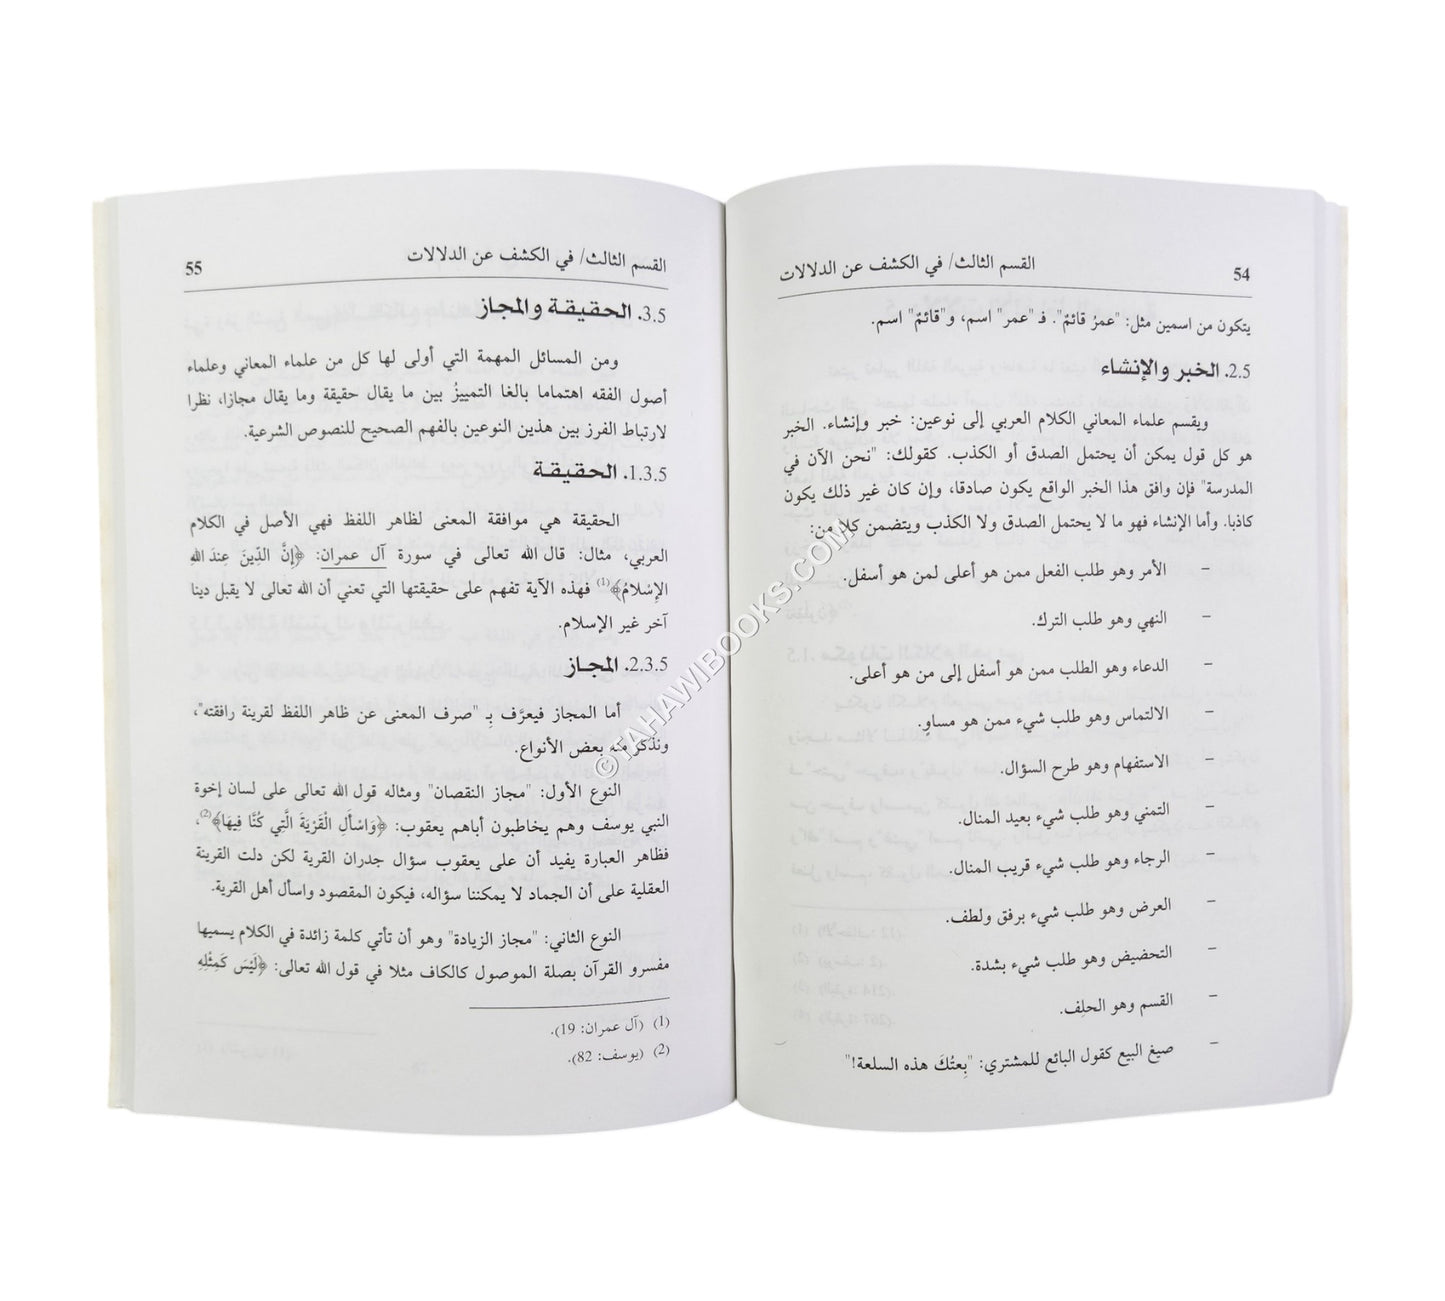 54
القسم الثالث/ في الكشف عن الدلالات
يتكون من اسمين مثل: "عمرُ قائمٌ". فـ "عمر" اسم، و"قائمٌ" اسم.
2.5. الخبر والإنشاء
ويقسم علماء المعاني الكلام العربي إلى نوعين: خبر وإنشاء. الخبر
هو كل قول يمكن أن يحتمل الصدق أو الكذب. كقولك: "نحن الآن في
المدرسة" فإن وافق هذا الخبر الواقع يكون صادقا، وإن كان غير ذلك يكون
كاذبا. وأما الإنشاء فهو ما لا يحتمل الصدق ولا الكذب ويتضمن كلا من:
– الأمر وهو طلب الفعل ممن هو أعلى لمن هو أسفل.
– النهي وهو طلب الترك.
– الدعاء وهو الطلب ممن هو أسفل إلى من هو أعلى.
– الالتماس وهو طلب شيء ممن هو مساوٍ.
– الاستفهام وهو طرح السؤال.
– التمني وهو طلب شيء بعيد المنال.
– الرجاء وهو طلب شيء قريب المنال.
– العرض وهو طلب شيء برفق ولطف.
– التحضيض وهو طلب شيء بشدة.
– القسم وهو الحلِف.
– صيغ البيع كقول البائع للمشتري: "بِعتُكَ هذه السلعة!"
القسم الثالث/ في الكشف عن الدلالات
55
3.5. الحقيقة والمجاز
ومن المسائل المهمة التي أولى لها كل من علماء المعاني وعلماء
أصول الفقه اهتماما بالغا التمييزُ بين ما يقال حقيقة وما يقال مجازا، نظرا
لارتباط الفرز بين هذين النوعين بالفهم الصحيح للنصوص الشرعية.
1.3.5. الحقيقة
الحقيقة هي موافقة المعنى لظاهر اللفظ فهي الأصل في الكلام
العربي، مثال: قال الله تعالى في سورة آل عمران: ﴿إِنَّ الدِّينَ عِندَ اللهِ
الإِسْلامُ﴾(1) فهذه الآية تفهم على حقيقتها التي تعني أن الله تعالى لا يقبل دينا
آخر غير الإسلام.
2.3.5. المجاز
أما المجاز فيعرَّف بِـ "صرف المعنى عن ظاهر اللفظ لقرينة رافقته"،
ونذكر منه بعض الأنواع.
النوع الأول: "مجاز النقصان" ومثاله قول الله تعالى على لسان إخوة
النبي يوسف وهم يخاطبون أباهم يعقوب: ﴿وَاسْأَلِ الْقَرْيَةَ الَّتِي كُنَّا فِيهَا﴾(2)،
فظاهر العبارة يفيد أن على يعقوب سؤال جدران القرية لكن دلت القرينة
العقلية على أن الجماد لا يمكننا سؤاله، فيكون المقصود واسأل أهل القرية.
النوع الثاني: "مجاز الزيادة" وهو أن تأتي كلمة زائدة في الكلام يسميها
مفسرو القرآن بصلة الموصول كالكاف مثلا في قول الله تعالى: ﴿لَيْسَ كَمِثْلِهِ
(1) (آل عمران: 19).
(2) (يوسف: 82).
©TAHAWIBOOKS.COM